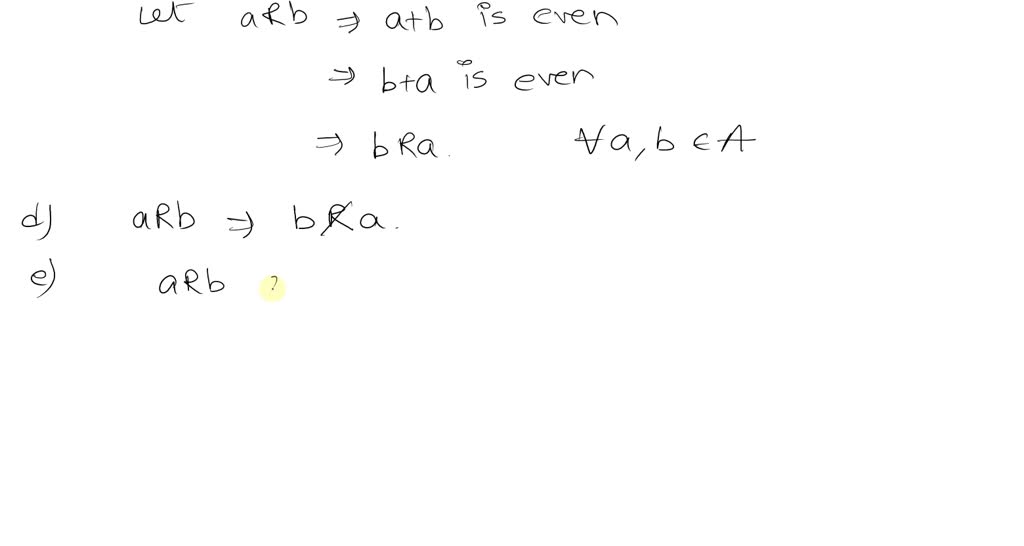 Let aRb ⇒ a+b is even
⇒ b+a is even
⇒ bRa. ∀a, b ∈ A
d) aRb ⇒ bR̸a.
e) aRb